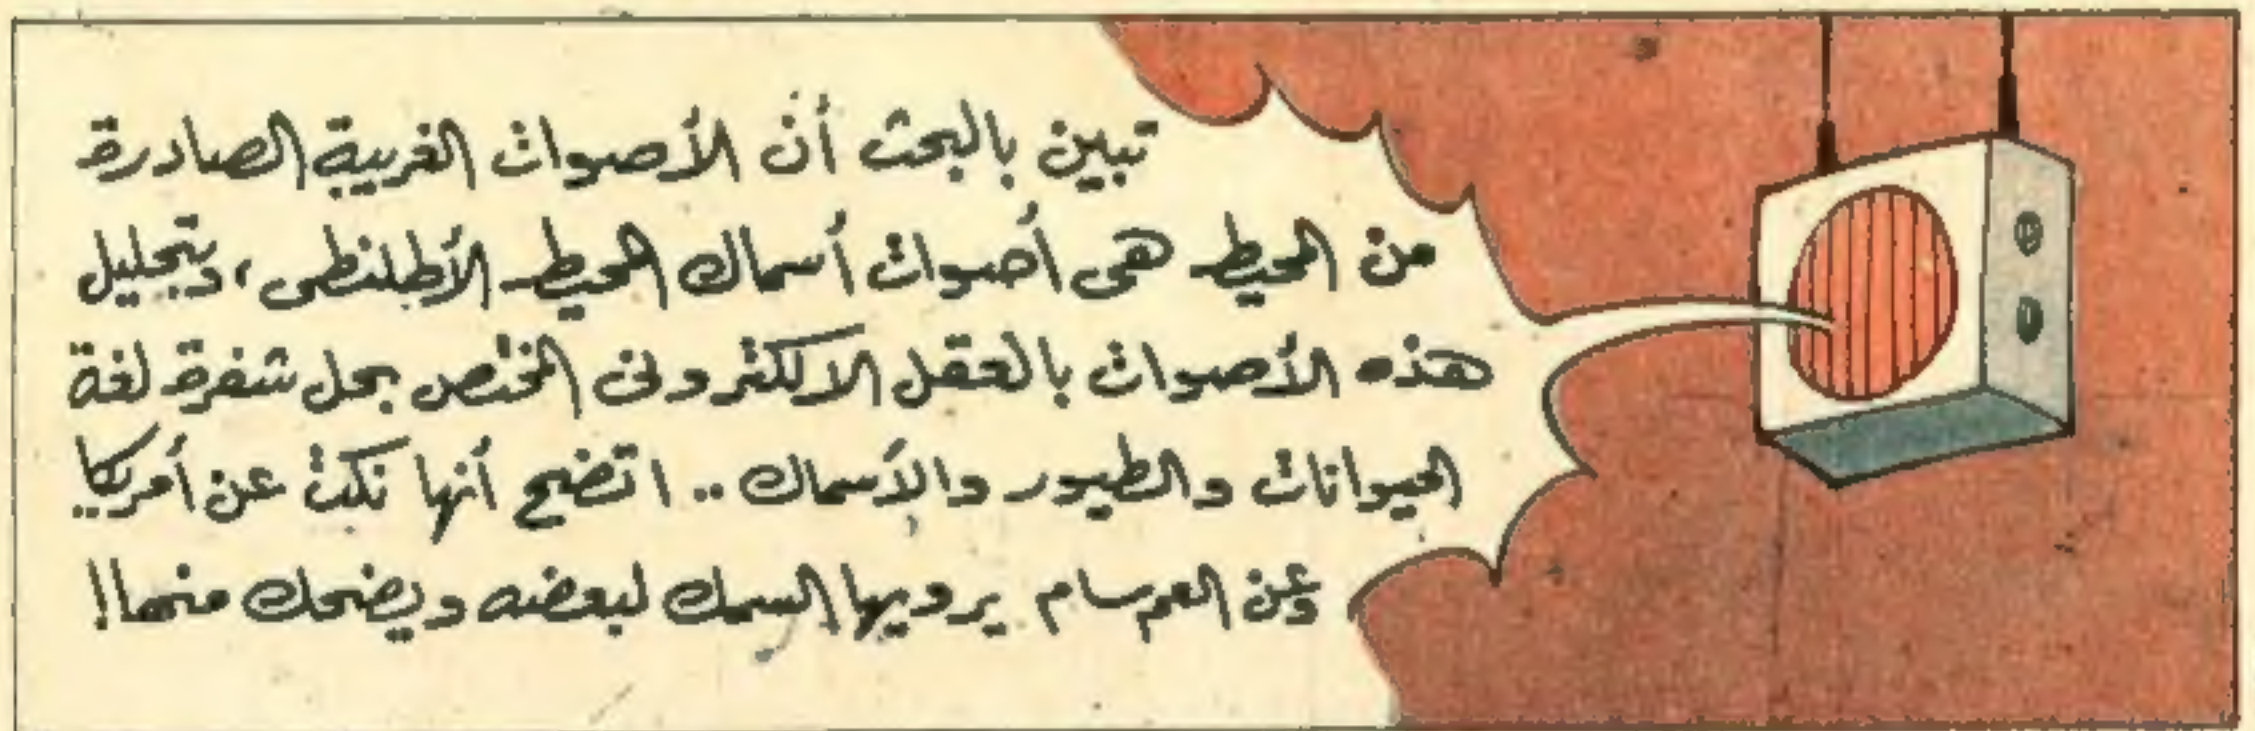 تبين بالبحث أن الأصوات الغريبة الصادرة
من المحيط هى أصوات أسماك المحيط الأطلنطى، وبتحليل
هذه الأصوات بالعقل الالكترونى المختص بحل شفرة لغة
الحيوانات والطيور والأسماك .. اتضح أنها نكت عن أمريكا
وعن العم سام يرويها السمك لبعضه ويضحك منها!